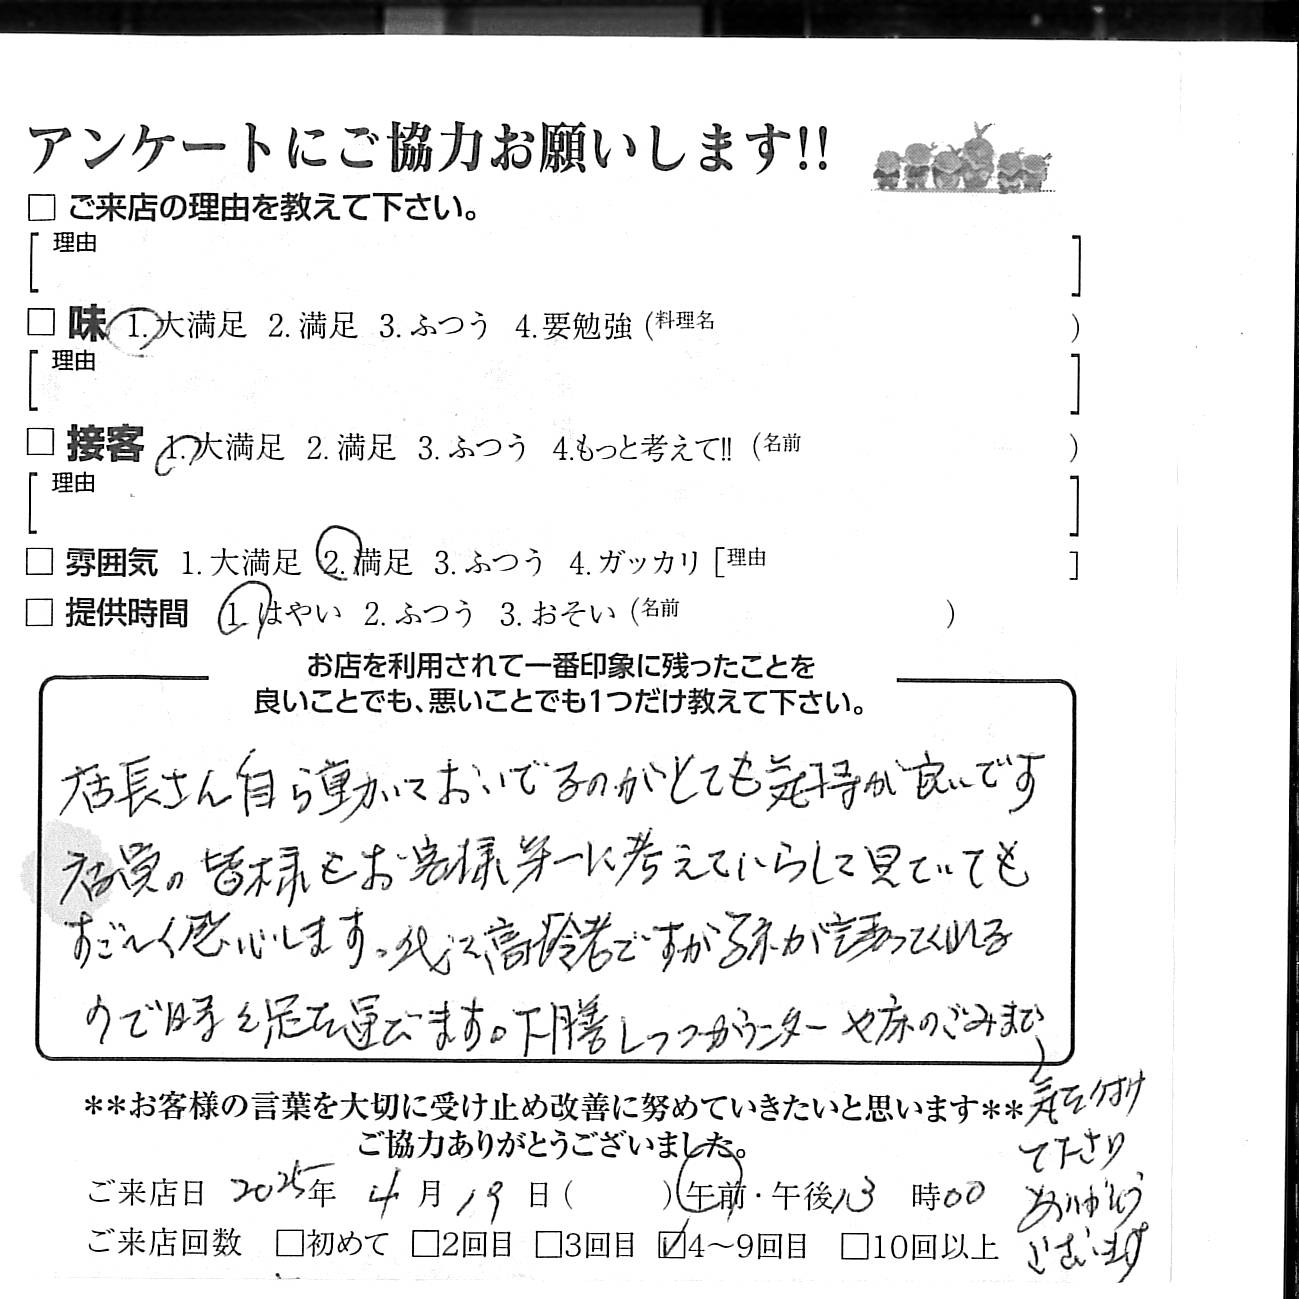 アンケートにご協力お願いします!!
□ ご来店の理由を教えて下さい。
[理由 ]
□ 味 1.大満足 2.満足 3.ふつう 4.要勉強 (料理名 )
[理由 ]
□ 接客 1.大満足 2.満足 3.ふつう 4.もっと考えて!! (名前 )
[理由 ]
□ 雰囲気 1.大満足 2.満足 3.ふつう 4.ガッカリ [理由 ]
□ 提供時間 1.はやい 2.ふつう 3.おそい (名前 )
お店を利用されて一番印象に残ったことを
良いことでも、悪いことでも1つだけ教えて下さい。
店長さん自ら動いておいでるのがとても気持が良いです
店員の皆様もお客様第一に考えていらして見ていても
すごく感心します。私は高齢者ですが孫が誘ってくれる
ので時々足を運びます。下膳しつつカウンターや床のごみまで
気を付け
て下さり
ありがとう
ございます
**お客様の言葉を大切に受け止め改善に努めていきたいと思います**
ご協力ありがとうございました。
ご来店日 2025年 4月 19日( ) 午前・午後 13時00
ご来店回数 □初めて □2回目 □3回目 ☑4〜9回目 □10回以上